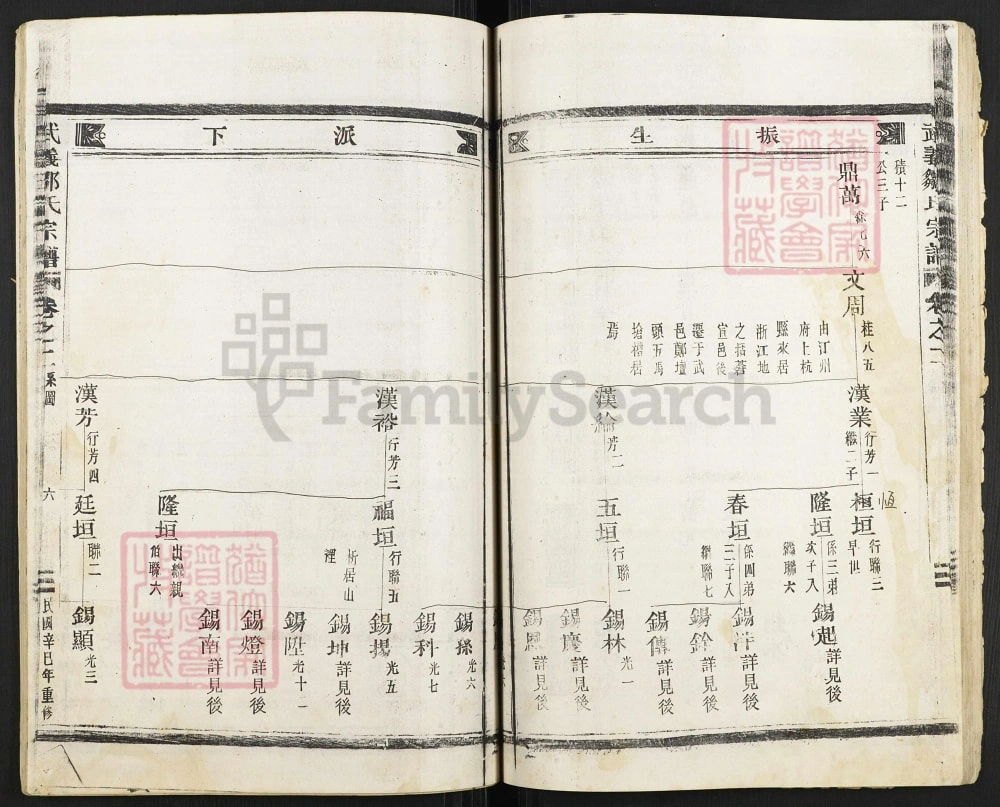 武義鄒氏宗譜
卷之二
振生
積十二
公三子
鼎萬
文周
桂八五
由江州
府上杭
縣來居
浙江地
之括蒼
宣邑後
遷于武
邑鄭壇
頭五馮
墖禧居
焉
漢業
行芳一
繼二子
桓垣
恆
行聯三
早世
隆垣
係三弟
次子入
繼聯六
錫起
詳見後
春垣
係四弟
三子入
繼聯七
錫許
詳見後
錫銓
詳見後
錫傳
詳見後
漢綸
芳二
五垣
行聯一
錫林
光一
錫慶
詳見後
錫恩
詳見後
派下
漢裕
行芳三
福垣
行聯五
析居山
裡
錫孫
光六
錫科
光七
錫揚
光五
錫坤
詳見後
錫陞
光十一
隆垣
出繼親
伯聯六
錫燈
詳見後
錫南
詳見後
漢芳
行芳四
廷垣
聯二
錫顯
光三
武義鄒氏宗譜
卷之二
系圖
六
民國辛巳年重修
FamilySearch